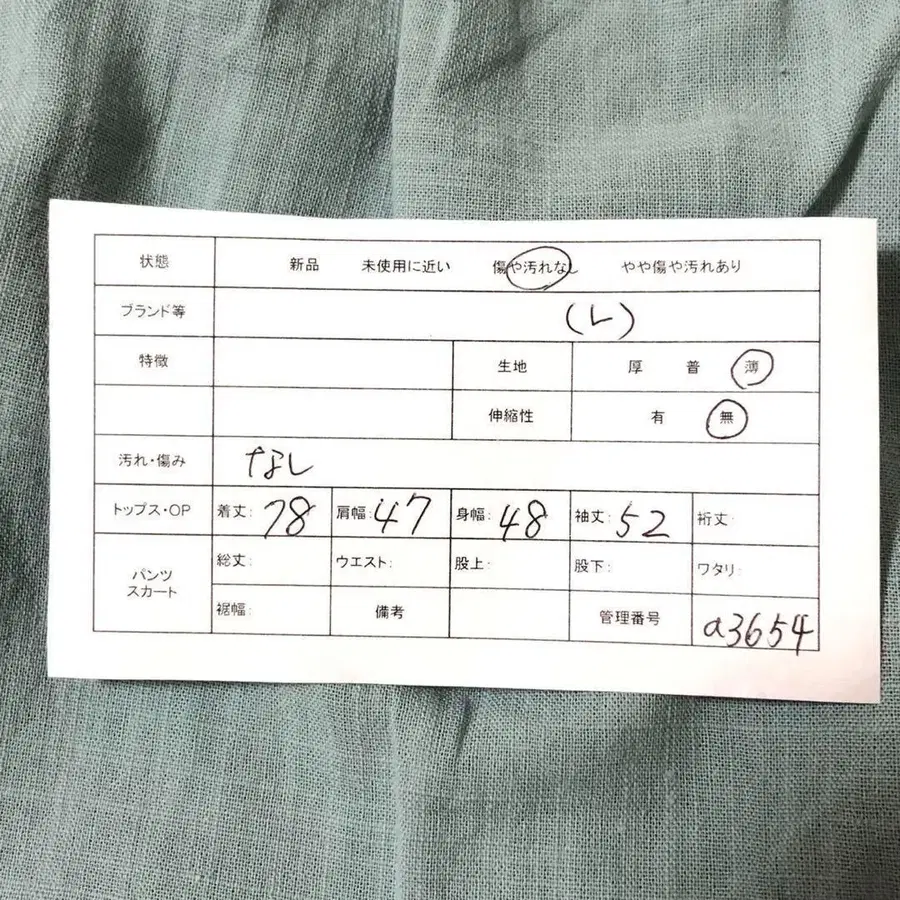 状態 新品 未使用に近い 傷や汚れなし やや傷や汚れあり
ブランド等 (L)
特徴 生地 厚 普 薄
伸縮性 有 無
汚れ・傷み なし
トップス・OP 着丈: 78 肩幅: 47 身幅: 48 袖丈: 52 裄丈:
パンツ スカート 総丈: ウエスト: 股上: 股下: ワタリ:
裾幅: 備考 管理番号 a3654